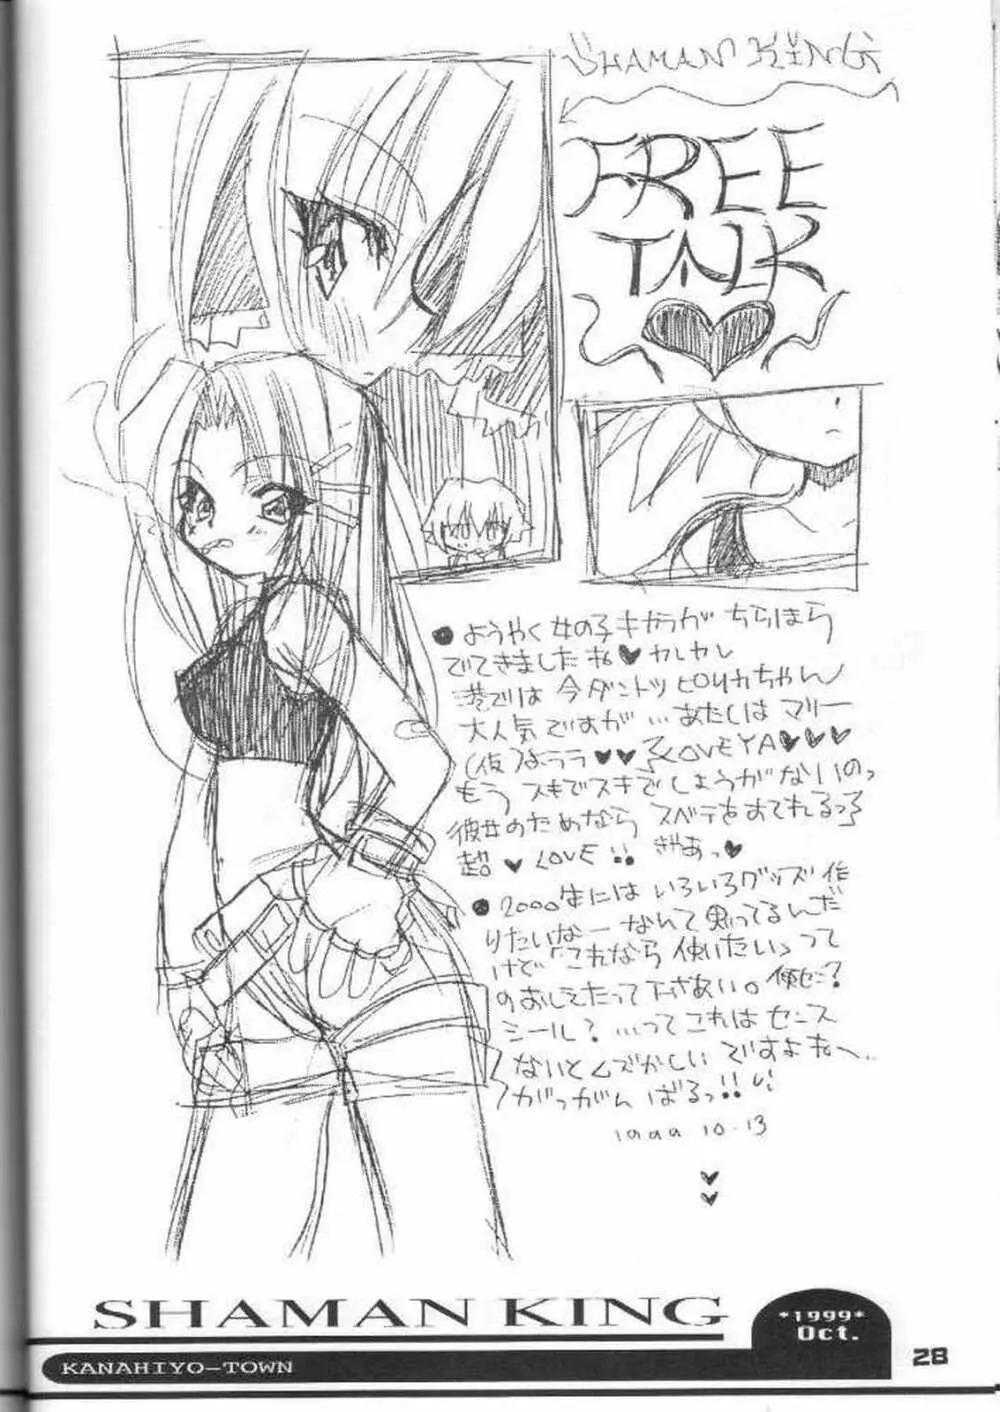 SHAMAN KING
FREE
TALK
●ようやく女の子キャラが ちらほら
でてきましたね♥カレカレ
港では今ダントツピリカちゃん
大人気ですが…あたしはマリー
(仮)よララ♥♥ LOVEYA♥♥♥
もう スキでスキでしょうがないのっ
彼女のためなら スベテをすてれるっ
超♥LOVE!! ぎゃあっ♥
●2000年には いろいろグッズ作
りたいなーなんて思ってるんだ
けど「これなら使いたい」って
のおしえたって下さあい。便セン?
シール? …ってこれはセンス
ないとムズかしいですよねへ…
がっがんばるっ!!
1999 10.13
♥
♥
SHAMAN KING
*1999*
Oct.
KANAHIYO-TOWN
28